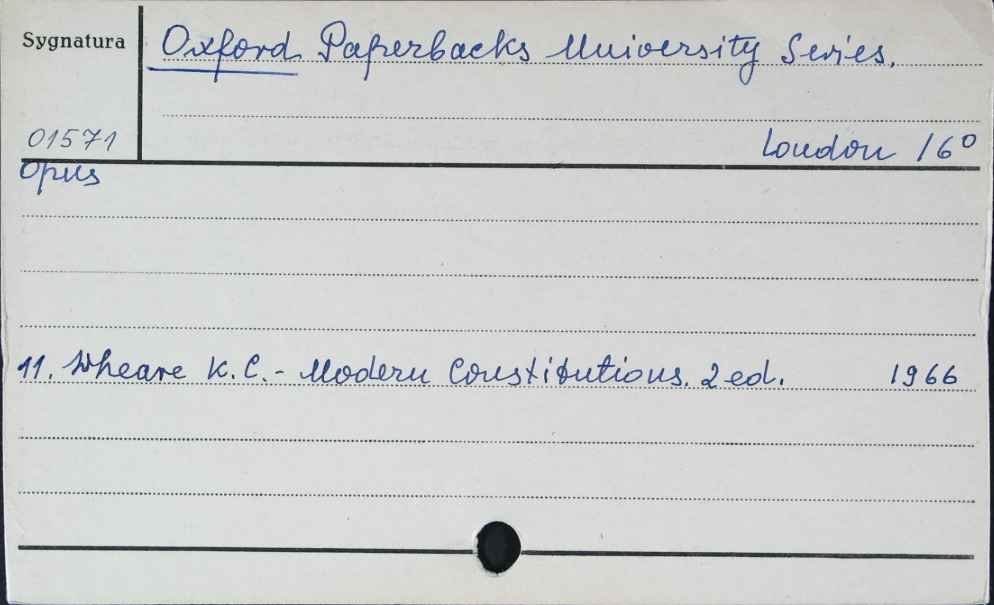 Sygnatura
Oxford Paperbacks University Series.
01571
London 16°
Opus
11. Wheare K.C. - Modern Constitutions. 2 ed. 1966